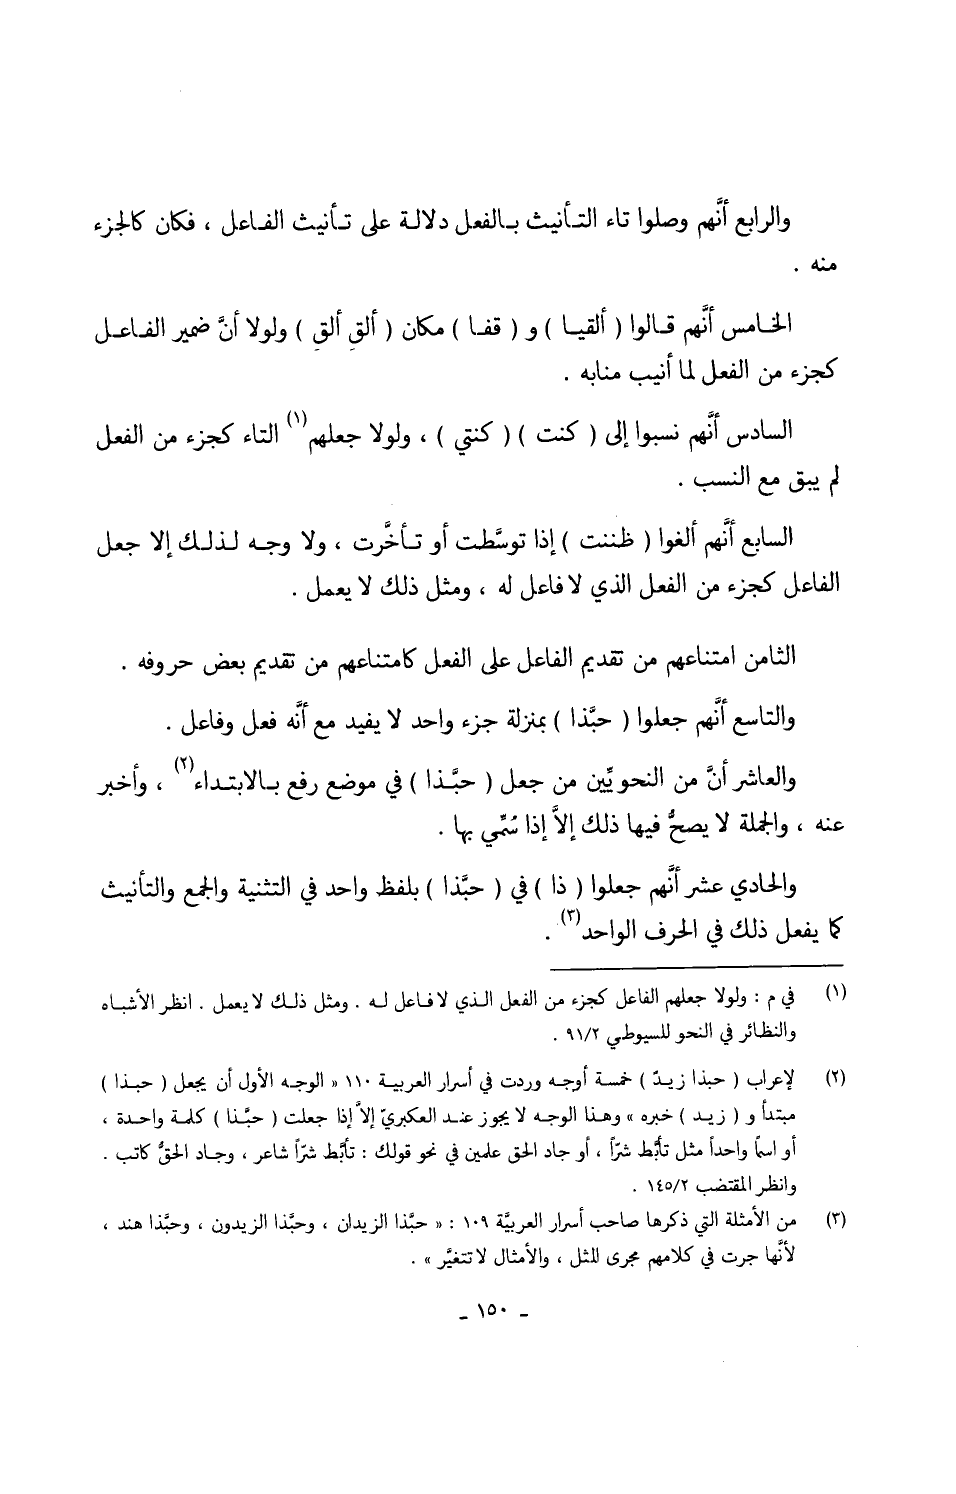 والرابع أنَّهم وصلوا تاء التـأنيث بـالفعل دلالـة على تـأنيث الفـاعل ، فكان كالجزء
منه .
الخـامس أنَّهم قـالوا ( ألقيـا ) و ( قفـا ) مكان ( ألقِ ألقِ ) ولولا أنَّ ضمير الفـاعـل
كجزء من الفعل لما أنيب منابه .
السادس أنَّهم نسبوا إلى ( كنت ) ( كنتي ) ، ولولا جعلهم(١) التاء كجزء من الفعل
لم يبق مع النسب .
السابع أنَّهم ألغوا ( ظننت ) إذا توسَّطت أو تـأخَّرت ، ولا وجـه لـذلـك إلا جعل
الفاعل كجزء من الفعل الذي لا فاعل له ، ومثل ذلك لا يعمل .
الثامن امتناعهم من تقديم الفاعل على الفعل كامتناعهم من تقديم بعض حروفه .
والتاسع أنَّهم جعلوا ( حبَّذا ) بمنزلة جزء واحد لا يفيد مع أنَّه فعل وفاعل .
والعاشر أنَّ من النحويِّين من جعل ( حبَّـذا ) في موضع رفع بـالابتـداء(٢) ، وأخبر
عنه ، والجملة لا يصحُّ فيها ذلك إلاَّ إذا سُمِّي بها .
والحادي عشر أنَّهم جعلوا ( ذا ) في ( حبَّذا ) بلفظ واحد في التثنية والجمع والتأنيث
كما يفعل ذلك في الحرف الواحد(٣) .
(١) في م : ولولا جعلهم الفاعل كجزء من الفعل الـذي لا فـاعل لـه . ومثل ذلـك لا يعمل . انظر الأشبـاه
والنظائر في النحو للسيوطي ٩١/٢ .
(٢) لإعراب ( حبذا زيـدٌ ) خمسة أوجـه وردت في أسرار العربيـة ١١٠ « الوجـه الأول أن يجعل ( حبـذا )
مبتدأ و ( زيـد ) خبره » وهـذا الوجـه لا يجوز عنـد العكبريّ إلاَّ إذا جعلت ( حبَّـذا ) كلمـة واحـدة ،
أو اسماً واحداً مثل تأبَّط شرّاً ، أو جاد الحق علمين في نحو قولك : تأبَّط شرّاً شاعر ، وجـاد الحقُّ كاتب .
وانظر المقتضب ١٤٥/٢ .
(٣) من الأمثلة التي ذكرها صاحب أسرار العربيَّة ١٠٩ : « حبَّذا الزيدان ، وحبَّذا الزيدون ، وحبَّذا هند ،
لأنَّها جرت في كلامهم مجرى المثل ، والأمثال لا تتغيَّر » .
ـ ١٥٠ ـ